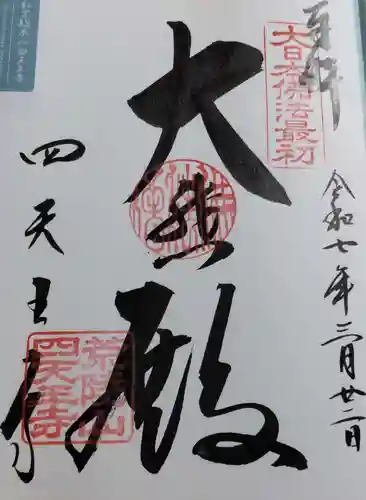 奉拝
大日本佛法最初
令和七年三月廿二日
大黒殿
四天王寺
荒陵山
四天王寺